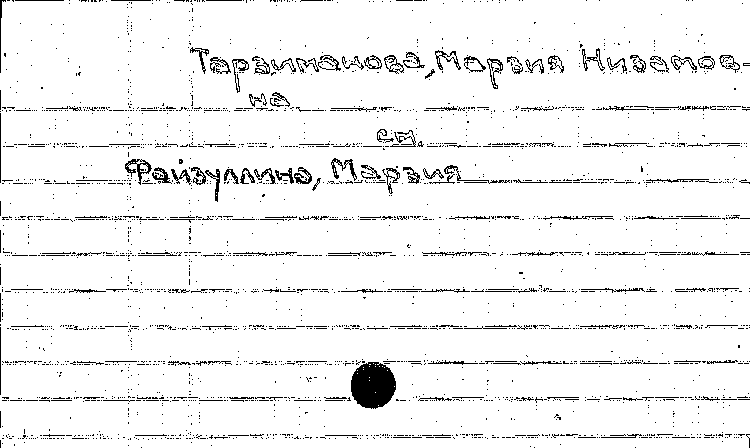 Тарзиманова, Марзия Низамов-
на
см.
Файзуллина, Марзия